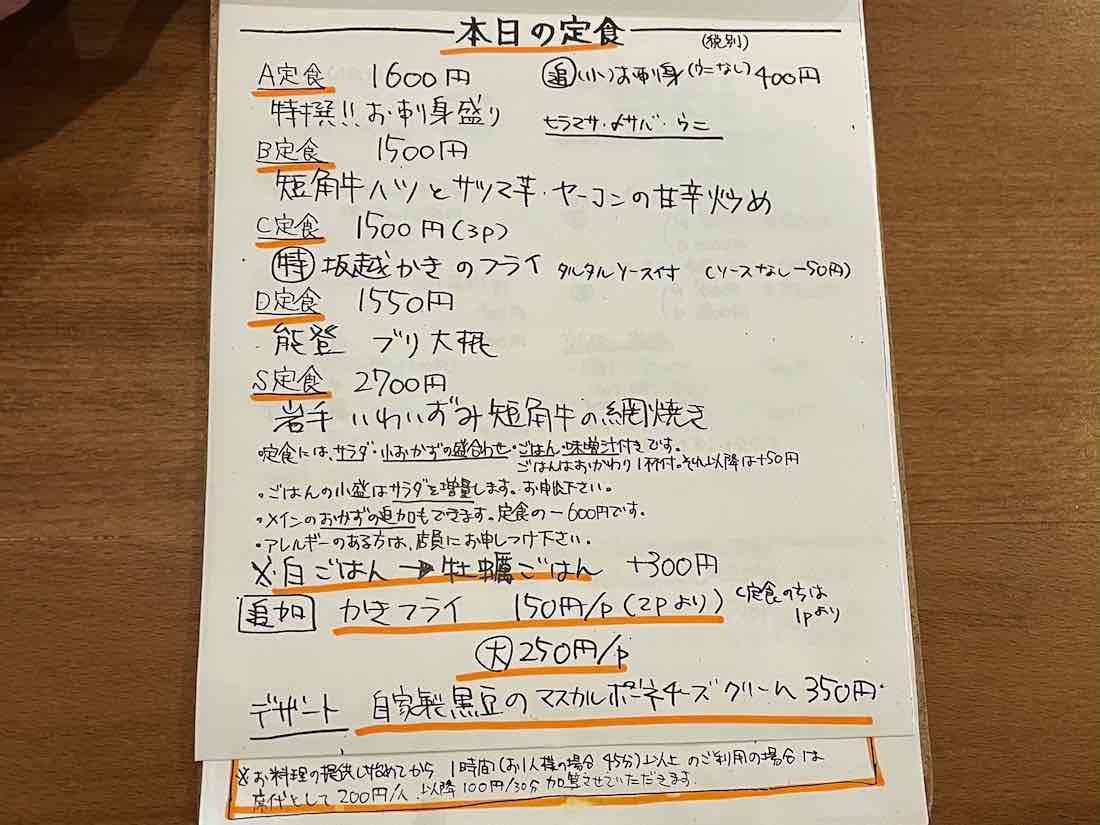 本日の定食
(税別)
A定食 1600円 追 (小)お刺身(ウニなし)400円
特撰!!お刺身盛り ヒラマサ・〆サバ・ウニ
B定食 1500円
短角牛ハツとサツマ芋・ヤーコンの甘辛炒め
C定食 1500円(3p)
特 坂越かきのフライ タルタルソース付 (ソースなし-50円)
D定食 1550円
能登 ブリ大根
S定食 2700円
岩手 いわいずみ短角牛の網焼き
・定食には、サラダ・小おかずの盛合わせ・ごはん・味噌汁付きです。
ごはんはおかわり1杯付。それ以降は+50円
・ごはんの小盛はサラダを増量します。お申込下さい。
・メインのおかずの追加もできます。定食の-600円です。
・アレルギーのある方は、店員にお申しつけ下さい。
※白ごはん→牡蠣ごはん +300円
追加 かきフライ 150円/p(2pより) C定食の方は
1pより
大 250円/p
デザート 自家製黒豆のマスカルポーネチーズクリーム 350円
※お料理の提供し始めてから 1時間(お1人様の場合 45分)以上のご利用の場合は
席代として200円/人 以降100円/30分加算させていただきます。